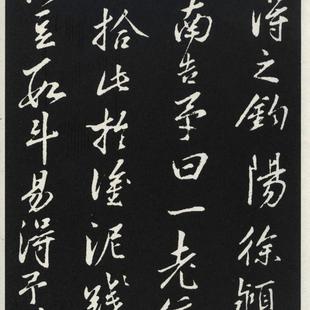 得之鈞陽徐穎
南告予曰一老
拾此於塗泥
豆取斗易得予